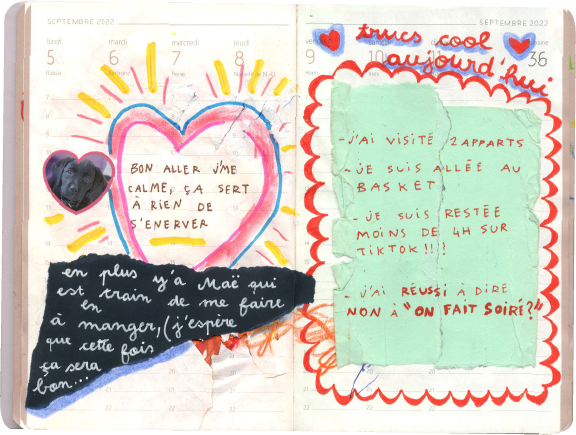 SEPTEMBRE 2022
lundi
5
mardi
6
mercredi
7
jeudi
8
BON ALLER J'ME
CALME, ÇA SERT
À RIEN DE
S'ENERVER
en plus y'a Maë qui
est train de me faire
en
à manger, (j'espère
que cette fois
ça sera
bon...
SEPTEMBRE 2022
9
10
36
trucs cool
aujourd'hui
- J'AI VISITÉ 2 APPARTS
- JE SUIS ALLÉE AU
BASKET
- JE SUIS RESTÉE
MOINS DE 4H SUR
TIKTOK!!!
- J'AI RÉUSSI À DIRE
NON À "ON FAIT SOIRÉ?"